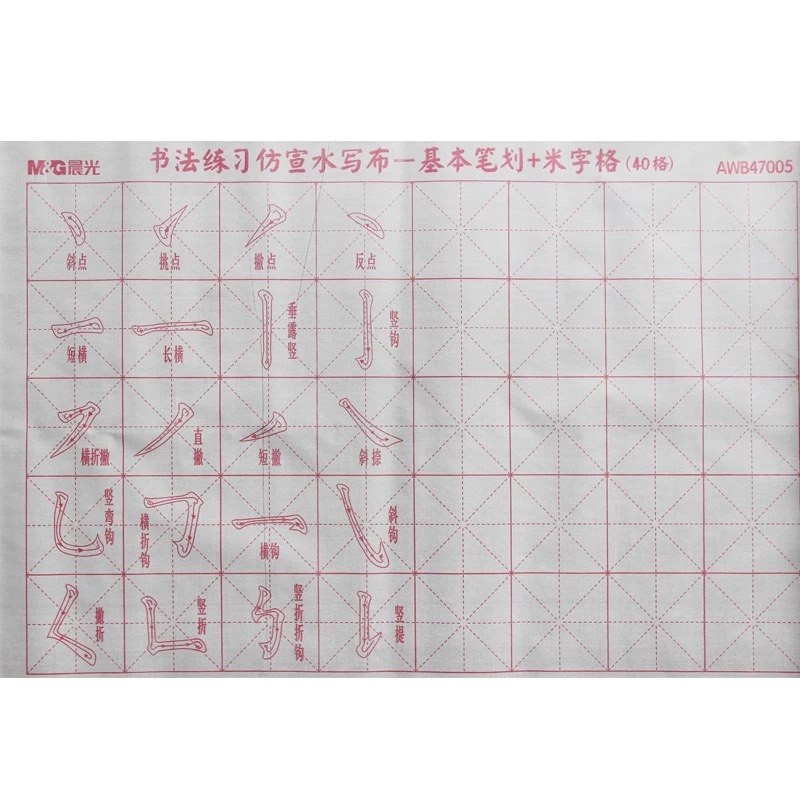 M&G晨光 书法练习仿宣水写布—基本笔划+米字格(40格) AWB47005
斜点 挑点 撇点 反点
短横 长横 垂露竖 竖钩
横折撇 直撇 短撇 斜捺
竖弯钩 横折钩 横钩 斜钩
撇折 竖折 竖折折钩 竖提